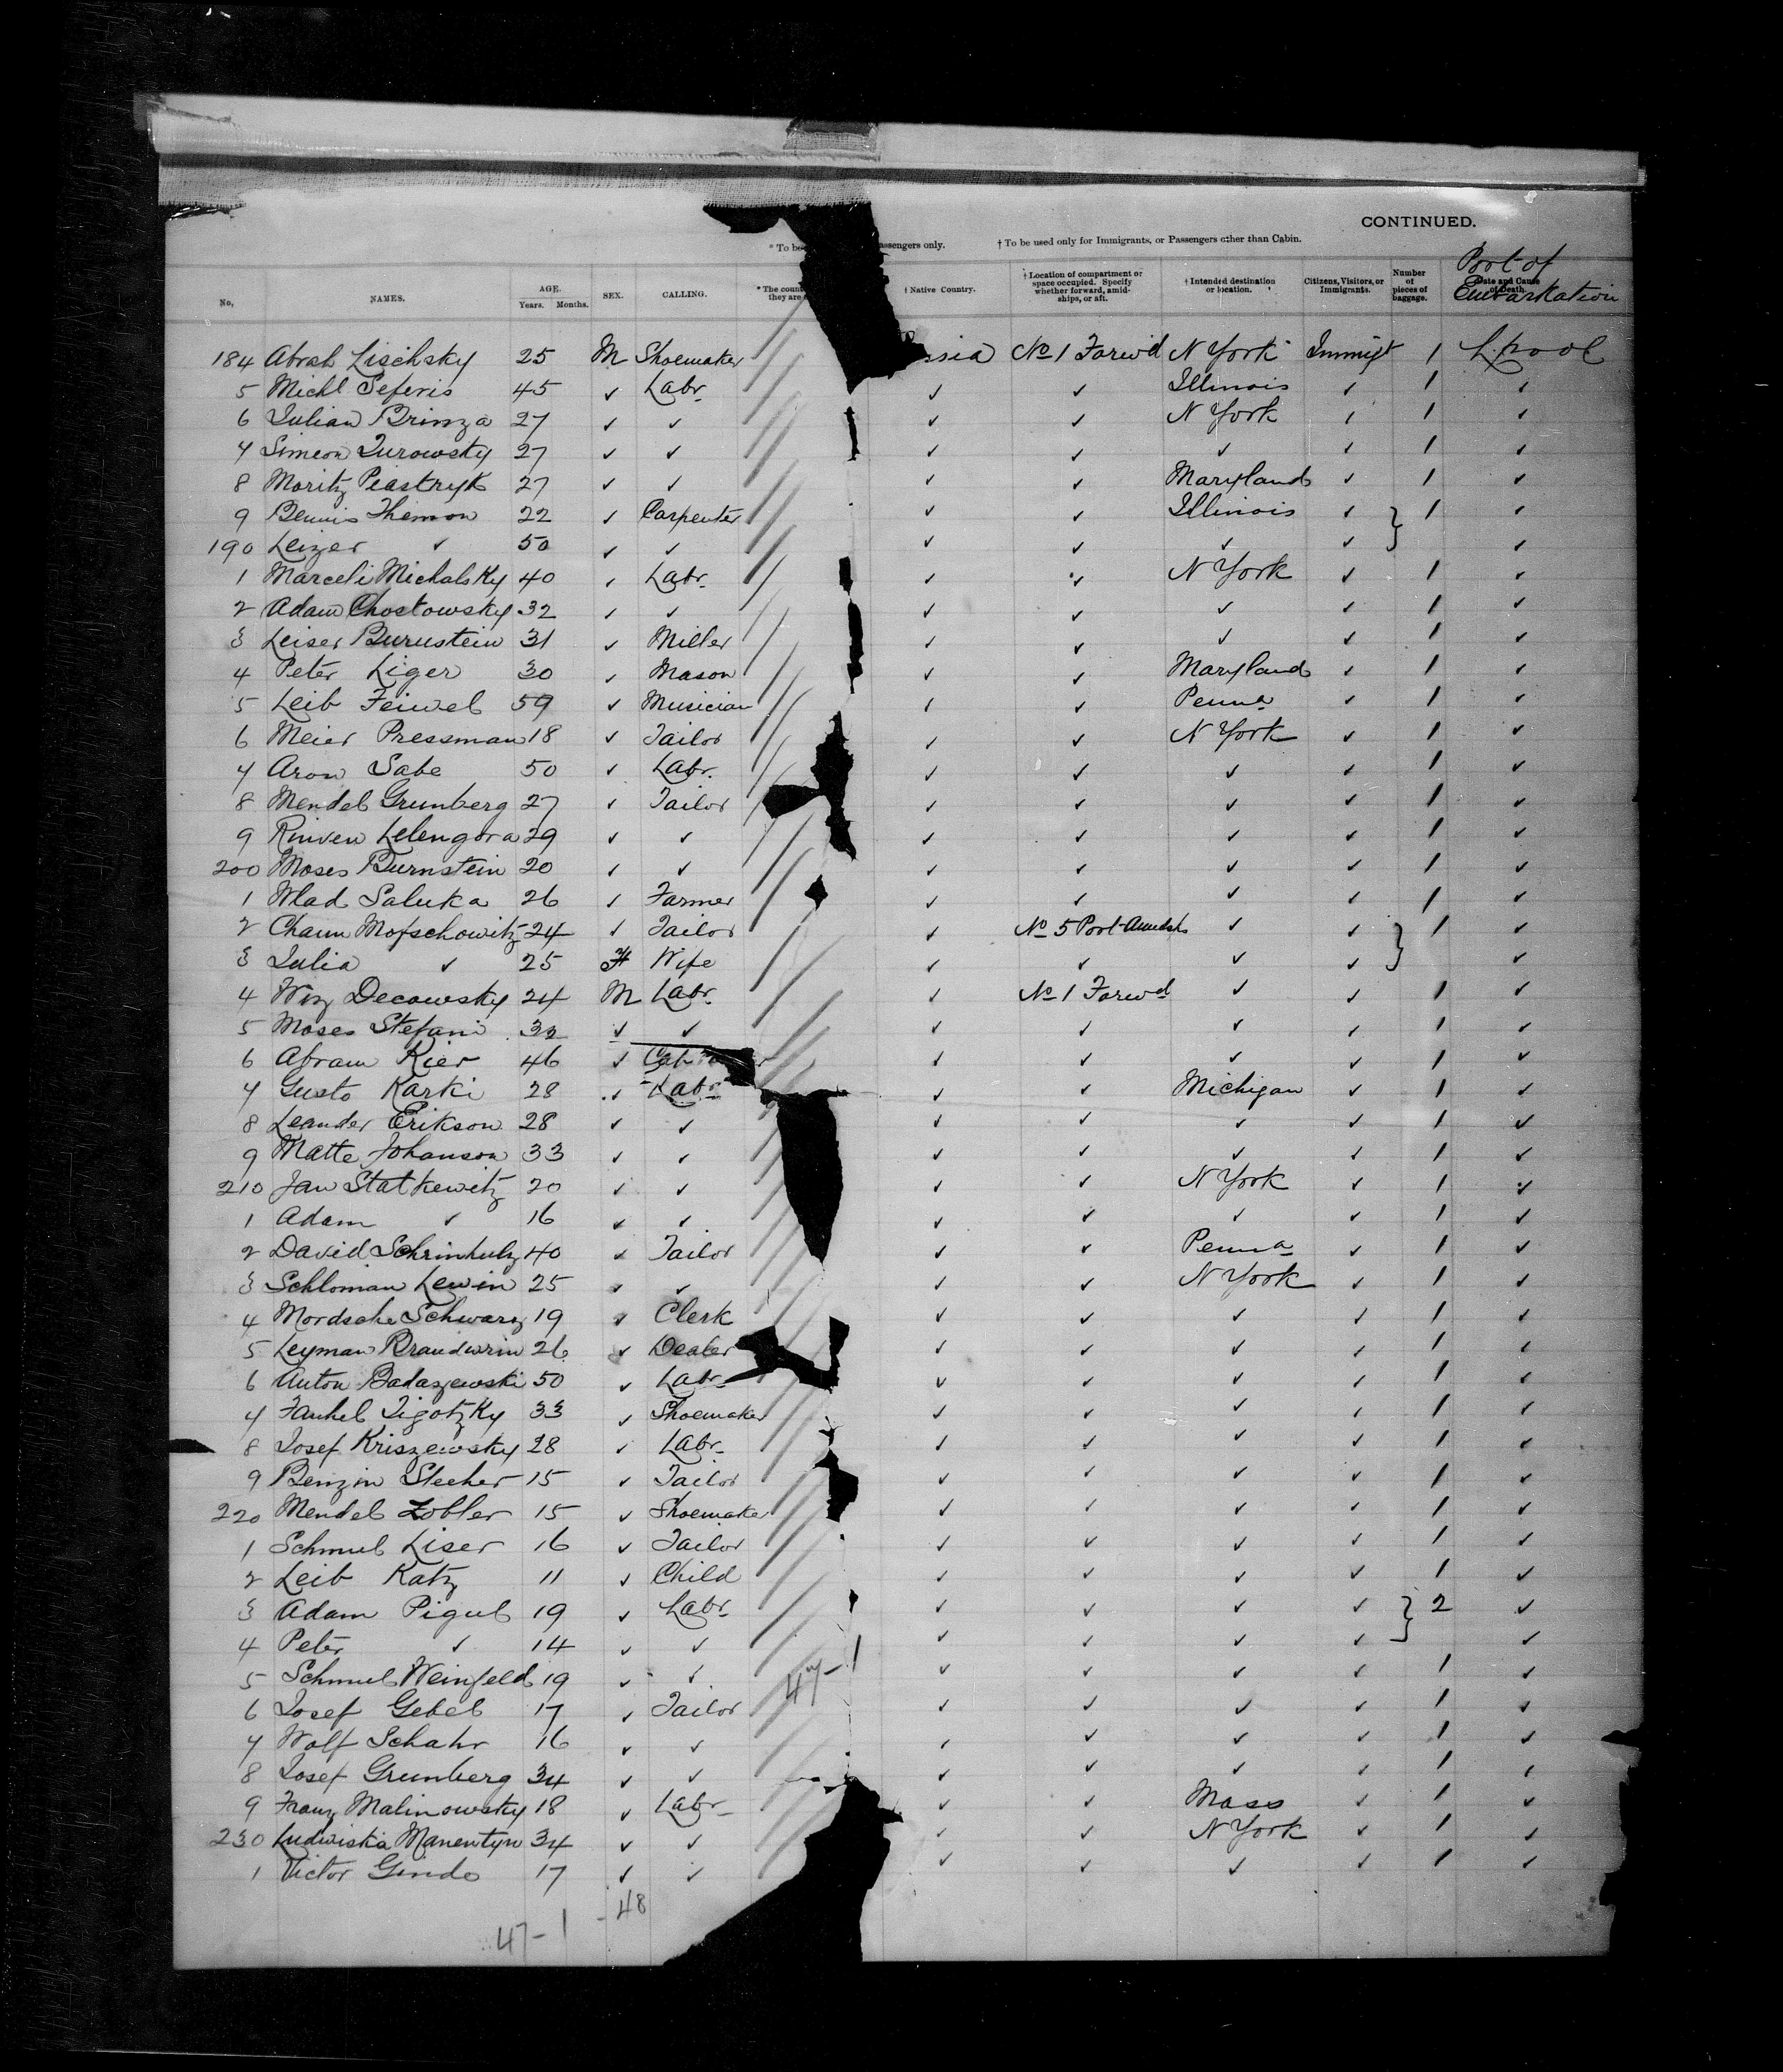 CONTINUED.
* To be assengers only. † To be used only for Immigrants, or Passengers other than Cabin.
No. NAMES. AGE. Years. Months. SEX. CALLING. * The coun they are † Native Country. † Location of compartment or space occupied. Specify whether forward, amidships, or aft. † Intended destination or location. Citizens, Visitors, or Immigrants. Number of pieces of baggage. Date and Cause of Death. Port of Embarkation
184 Abrah Lischsky 25 M Shoemaker ssia No 1 Forwd N York Immigt 1 L.pool
5 Michl Seferis 45 ✓ Labr ✓ ✓ Illinois ✓ 1 ✓
6 Julian Brinza 27 ✓ ✓ ✓ ✓ N York ✓ 1 ✓
7 Simeon Jurowsky 27 ✓ ✓ ✓ ✓ ✓ ✓ 1 ✓
8 Moritz Piastryk 27 ✓ ✓ ✓ ✓ Maryland ✓ 1 ✓
9 Bennis Themon 22 ✓ Carpenter ✓ ✓ Illinois ✓ } 1 ✓
190 Leizer ✓ 50 ✓ ✓ ✓ ✓ ✓ ✓ ✓
1 Marceli Michalsky 40 ✓ Labr ✓ ✓ N York ✓ 1 ✓
2 Adam Chostowsky 32 ✓ ✓ ✓ ✓ ✓ ✓ 1 ✓
3 Leiser Burnstein 31 ✓ Miller ✓ ✓ ✓ ✓ 1 ✓
4 Peter Liger 30 ✓ Mason ✓ ✓ Maryland ✓ 1 ✓
5 Leib Feiwel 59 ✓ Musician ✓ ✓ Penna ✓ 1 ✓
6 Meier Pressman 18 ✓ Tailor ✓ ✓ N York ✓ 1 ✓
7 Aron Sabe 50 ✓ Labr. ✓ ✓ ✓ ✓ 1 ✓
8 Mendel Grunberg 27 ✓ Tailor ✓ ✓ ✓ ✓ 1 ✓
9 Rinven Lelengora 29 ✓ ✓ ✓ ✓ ✓ ✓ 1 ✓
200 Moses Burnstein 20 ✓ ✓ ✓ ✓ ✓ ✓ 1 ✓
1 Wlad Saluka 26 ✓ Farmer ✓ ✓ ✓ ✓ 1 ✓
2 Chaim Mofschowitz 24 ✓ Tailor ✓ No 5 Port Amidsh ✓ ✓ } 1 ✓
3 Julia ✓ 25 F Wife ✓ ✓ ✓ ✓ ✓
4 Decowsky 24 M Labr. ✓ No 1 Forwd ✓ ✓ 1 ✓
5 Moses Stefani 32 ✓ ✓ ✓ ✓ ✓ ✓ 1 ✓
6 Abram Kier 46 ✓ ✓ ✓ ✓ ✓ 1 ✓
7 Gusto Karki 28 ✓ Labr ✓ ✓ Michigan ✓ 1 ✓
8 Leander Erikson 28 ✓ ✓ ✓ ✓ ✓ ✓ 1 ✓
9 Matte Johanson 33 ✓ ✓ ✓ ✓ ✓ ✓ 1 ✓
210 Jan Statkewitz 20 ✓ ✓ ✓ ✓ N York ✓ 1 ✓
1 Adam ✓ 16 ✓ ✓ ✓ ✓ ✓ ✓ 1 ✓
2 David Schrinhulz 40 ✓ Tailor ✓ ✓ Penna ✓ 1 ✓
3 Schloman Lewin 25 ✓ ✓ ✓ ✓ N York ✓ 1 ✓
4 Mordsche Schwarz 19 ✓ Clerk ✓ ✓ ✓ ✓ 1 ✓
5 Leyman Brandwrin 26 ✓ Dealer ✓ ✓ ✓ ✓ 1 ✓
6 Anton Badaszewski 50 ✓ Labr ✓ ✓ ✓ ✓ 1 ✓
7 Fankel Tigotzky 33 ✓ Shoemaker ✓ ✓ ✓ ✓ 1 ✓
8 Josef Kriszewsky 28 ✓ Labr ✓ ✓ ✓ ✓ 1 ✓
9 Benzin Stecher 15 ✓ Tailor ✓ ✓ ✓ ✓ 1 ✓
220 Mendel Zobler 15 ✓ Shoemaker ✓ ✓ ✓ ✓ 1 ✓
1 Schmul Liser 16 ✓ Tailor ✓ ✓ ✓ ✓ 1 ✓
2 Leib Katz 11 ✓ Child ✓ ✓ ✓ ✓ 1 ✓
3 Adam Pigul 19 ✓ Labr ✓ ✓ ✓ ✓ } 2 ✓
4 Peter ✓ 14 ✓ ✓ ✓ ✓ ✓ ✓ ✓
5 Schmul Weinfeld 19 ✓ ✓ 47-1 ✓ ✓ ✓ ✓ 1 ✓
6 Josef Gebel 17 ✓ Tailor ✓ ✓ ✓ ✓ 1 ✓
7 Wolf Schahr 16 ✓ ✓ ✓ ✓ ✓ ✓ 1 ✓
8 Josef Grunberg 34 ✓ ✓ ✓ ✓ ✓ ✓ 1 ✓
9 Franz Malinowsky 18 ✓ Labr ✓ ✓ Mass ✓ 1 ✓
230 Ludwiska Manentyn 34 ✓ ✓ ✓ ✓ N York ✓ 1 ✓
1 Victor Gindo 17 ✓ ✓ ✓ ✓ ✓ ✓ 1 ✓
48
47-1